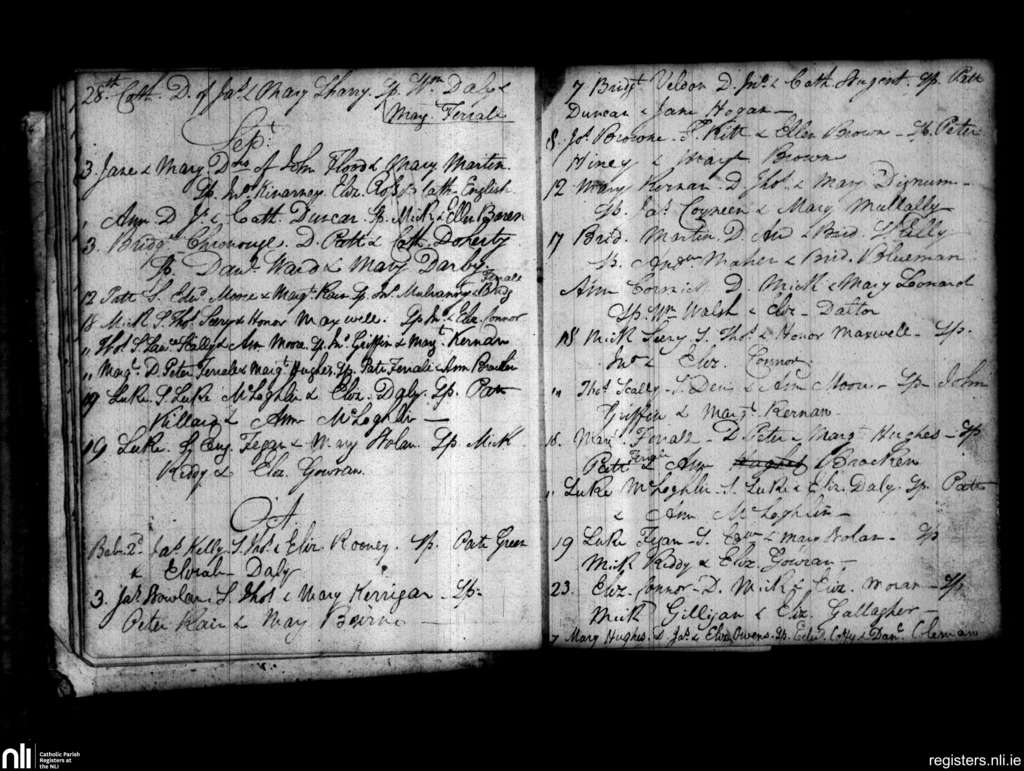 28th Cath. D. of Jas. & Mary Sharry. Sp. Wm. Daly &
Mary Ferrale
Sept.
3. Jane & Mary Drs of John Flood & Mary Martin.
Sp. Jno. Kinarney Eliz. & Cath. English
" Ann D. Js. & Cath. Duncan Sp. Mick & Ellen
3. Bridgt. D. Patt & Cath Doherty
Sp. Danl. Ward & Mary Darby
Ferrale
12 Patt S. Edwd. Moore & Margt. Kain Sp. Jno. Mulranny & Bridg
18 Mick S. Thos. Seery & Honor Maxwell. Sp. Jno. & Eliz. Connor
" Thos. S. Scally & Ann Moore. Sp. Jno. Griffin & Margt. Kernan
" Margt. D. Peter Ferrale & Margt. Hughes, Sp. Patt Ferrale & Ann Bracken
19 Luke. S. Luke McLoghlin & Eliz. Daly. Sp. Patt
& Ann McLoghlin —
19 Luke. S. Eug. Fegan & Mary Nolan. Sp Mick
Reddy & Eliz. Gowran.
Oct.
2d. Jas. Kelly S. Thos. & Eliz. Rooney. Sp. Patt Green
& Daly
3. Jas. Nowlan S. Thos. & Mary Kerrigan. Sp.
Peter Kain & Mary Beirne —
7 Bridgt. Veldon D. Jno. & Cath Nugent. Sp. Patt
Duncan & Jane Hogan —
8. Js. Browne. S. Patt & Ellen Brown — Sp. Peter
& Margt. Brown
12 Mary Kernan D. Thos. & Mary Dignum —
Sp. Jas. & Mary Mullally —
17 Brid. Martin. D. & Brid. Scally
Sp. Andrw Maher & Brid. Blueman
Ann Cormick D. Mick & Mary Leonard
Sp. Wm Walsh & Eliz. Dalton
18 Mick Seery S. Thos. & Honor Maxwell — Sp.
Jno. & Eliz Connor
" Thos. Scally — S. Denis & Ann Moore — Sp. John
Griffin & Margt. Kernan
18. Margt. Ferrall — D. Peter & Margt. Hughes — Sp
Patt & Ann Hughes Bracken
" Luke McLoghlin — S. Luke & Eliz. Daly. Sp. Patt
& Ann McLoghlin —
19 Luke Fegan — S. & Mary Nolan — Sp
Mick Reddy & Eliz Gowran —
23. Eliz. Connor — D. Mick & Eliz. Moran — Sp
Mick Gilligan & Eliz. Gallagher —
7 Mary Hughes. D. Jas. & Eliz. Owens. Sp. Edwd. & Coleman
nli
Catholic Parish
Registers at
the NLI
registers.nli.ie